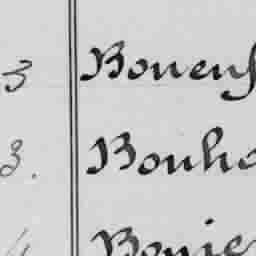 3 Bouens
3. Bouho
4 Bouie